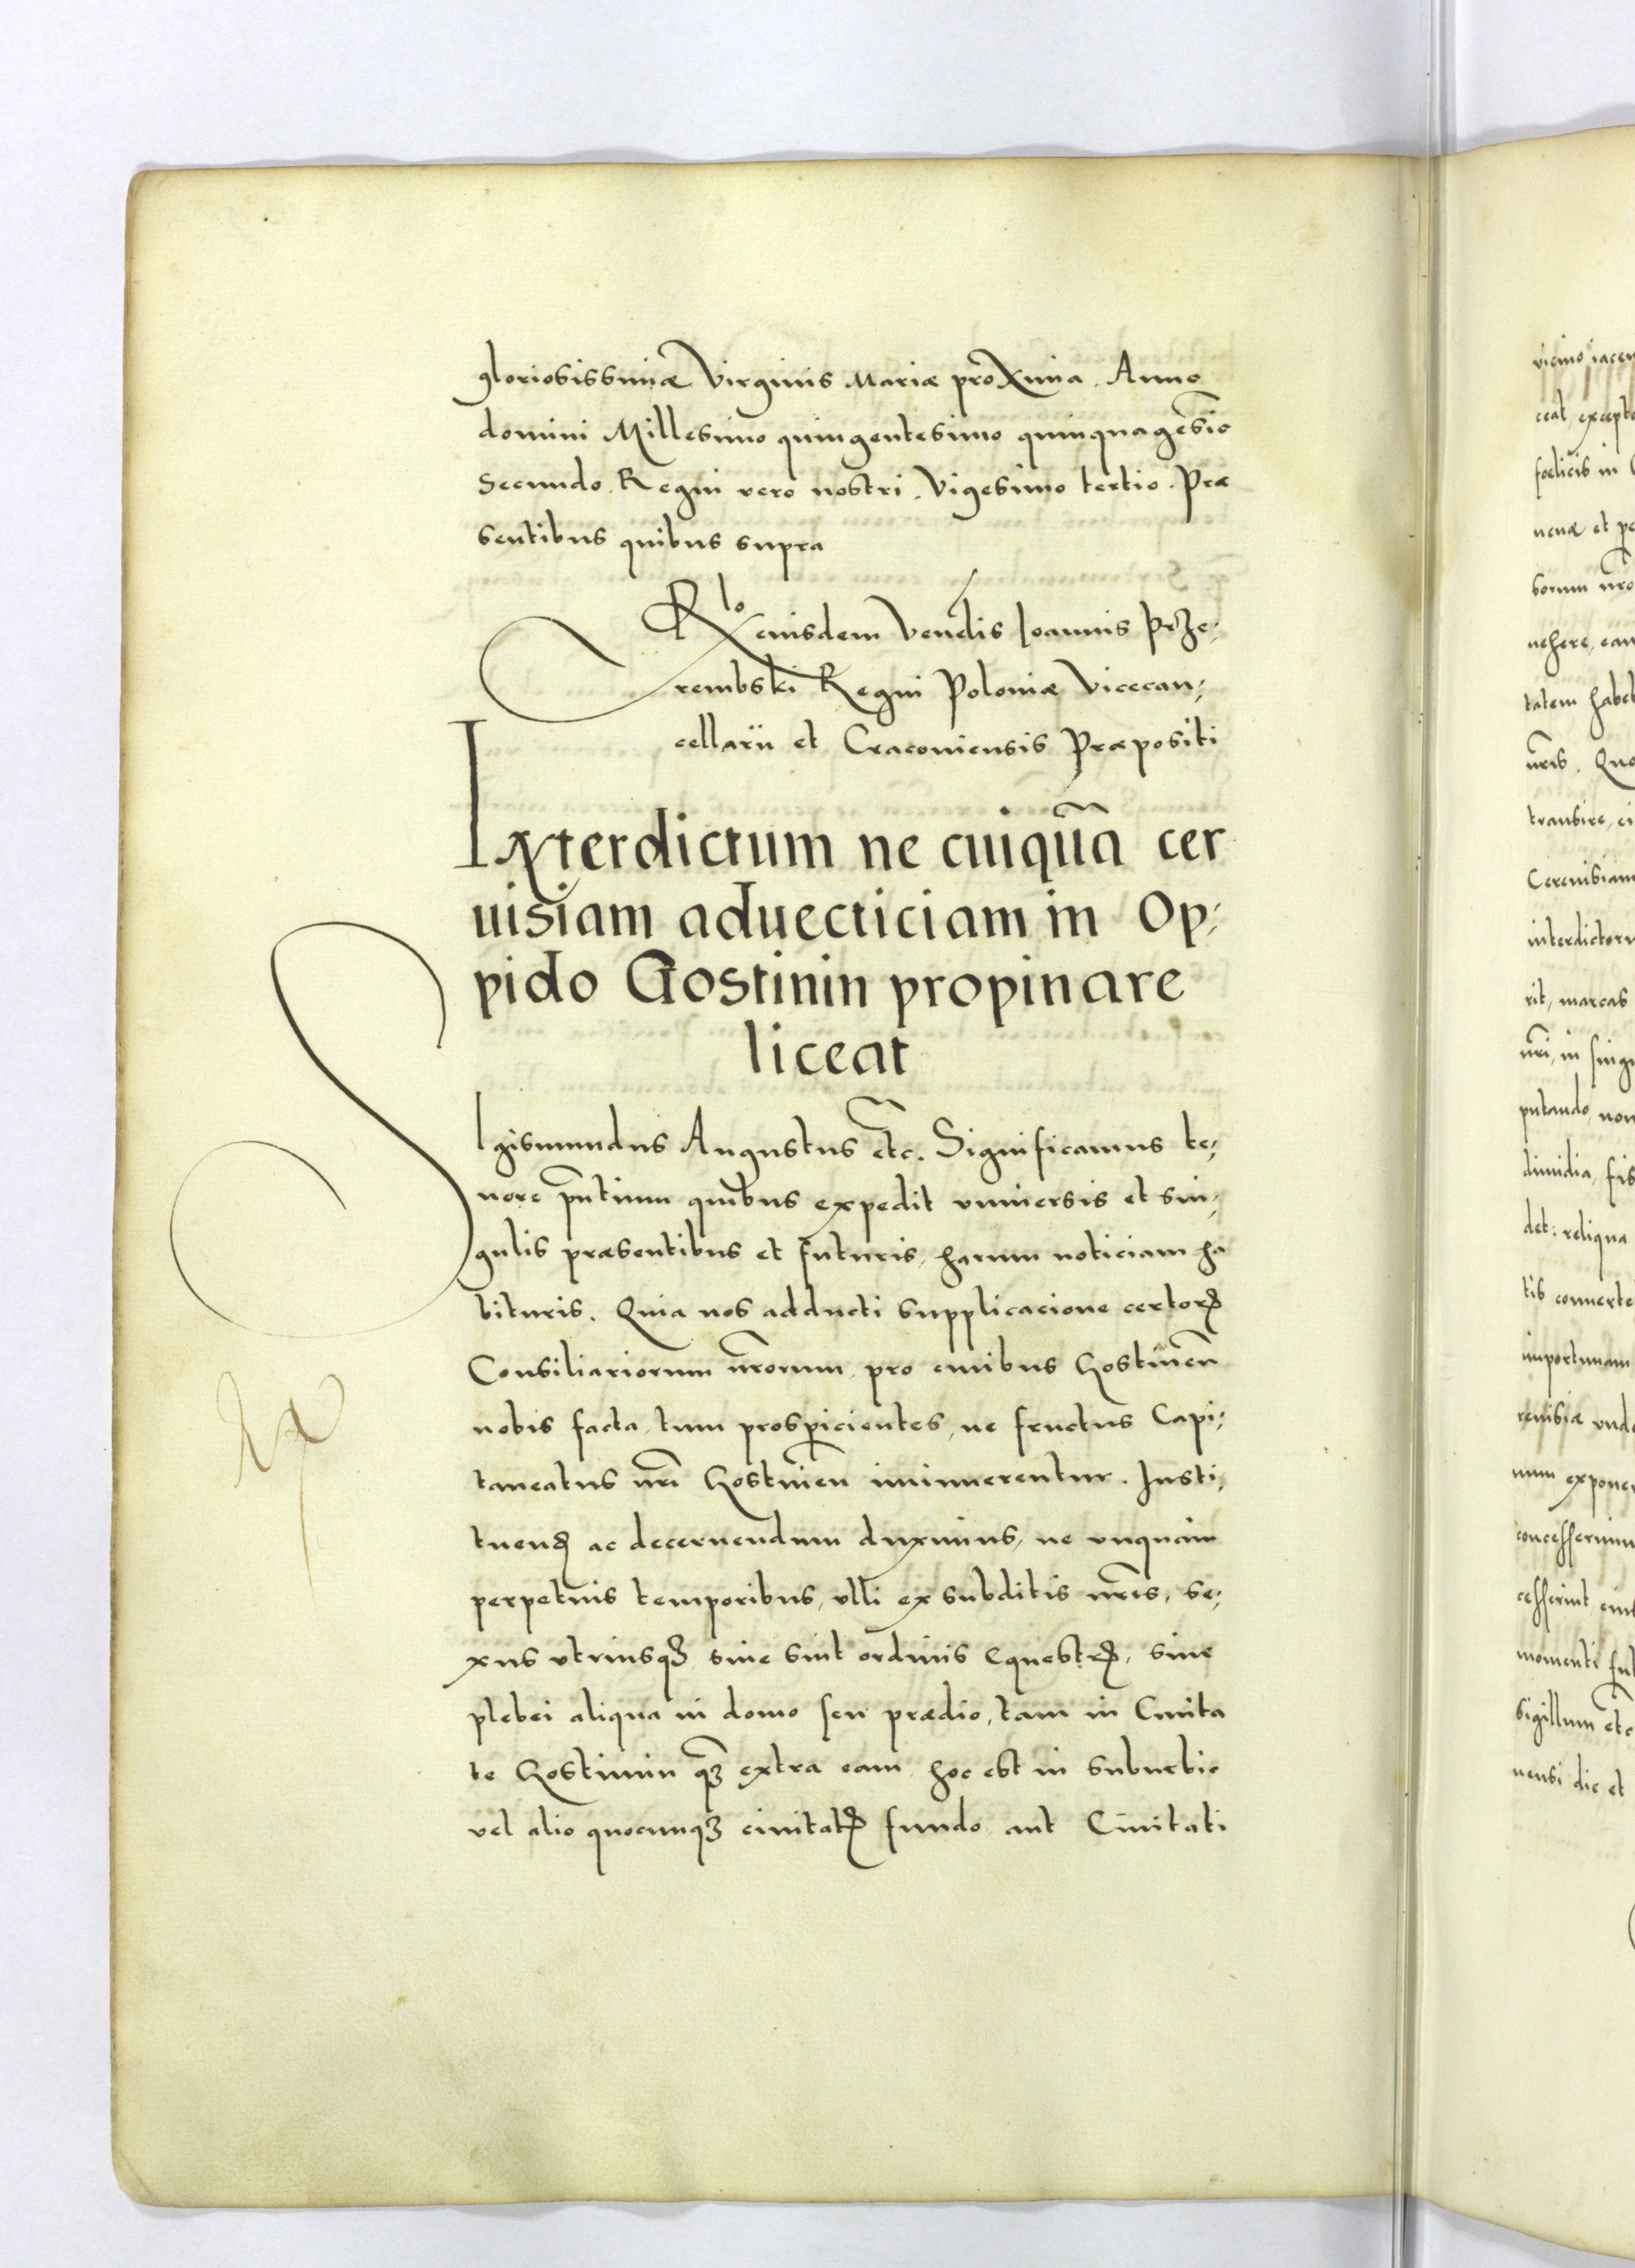 gloriosissimæ Virginis Mariæ proXima. Anno
domini Millesimo quingentesimo quinquagesĩo
Secundo. Regni vero nostri. Vigesimo tertio. Præ
sentibus quibus supra
Rlo eiusdem Venđlis Ioannis Prze,
rembski Regni Poloniæ Vicecan,
cellarii et Cracouiensis Præpositi
INterdictum ne cuiquã cer
uisiam aduecticiam in Op,
pido Gostinin propinare
liceat
SIgismundus Augustus etc̃. Significamus te,
nore pñtium quibus expedit vniuersis et sin,
gulis præsentibus et futuris, harum noticiam ha
bituris. Quia nos adducti supplicacione certorꝝ
Consiliariorum nr̃orum pro ciuibus Gostinen̄
nobis facta, tum prospicientes, ne fructus Capi,
taneatus nr̃i Gostinien̄ iminuerentur. Insti,
tuenꝺ ac decernendum duximus, ne vnquam
perpetuis temporibus, vlli ex subditis nr̃is, se,
xus vtriusqꝫ siue sint ordinis Equestrꝭ, siue
plebei aliqua in domo seu prædio, tam in Ciuita
te Gostinin qꝫ extra eam hoc est in suburbio
vel alio quocunqꝫ ciuitatꝭ fundo aut Ciuitati
vicino iacen
ceat except
fœlicis in
nenæ et pe
borum nr̃o
uehere, eam
tatem habe
nr̃is. Quo
transire, ci
Cereuisiam
interdictoru
rit, marcas
nr̃i, in sing
putando, non
dimidia, fis
det: reliqua
tis conuerte
importunam
reuisiæ vnd
num expone
concesserimu
cesserint
momenti fu
Sigillum etc̃
nensi die et